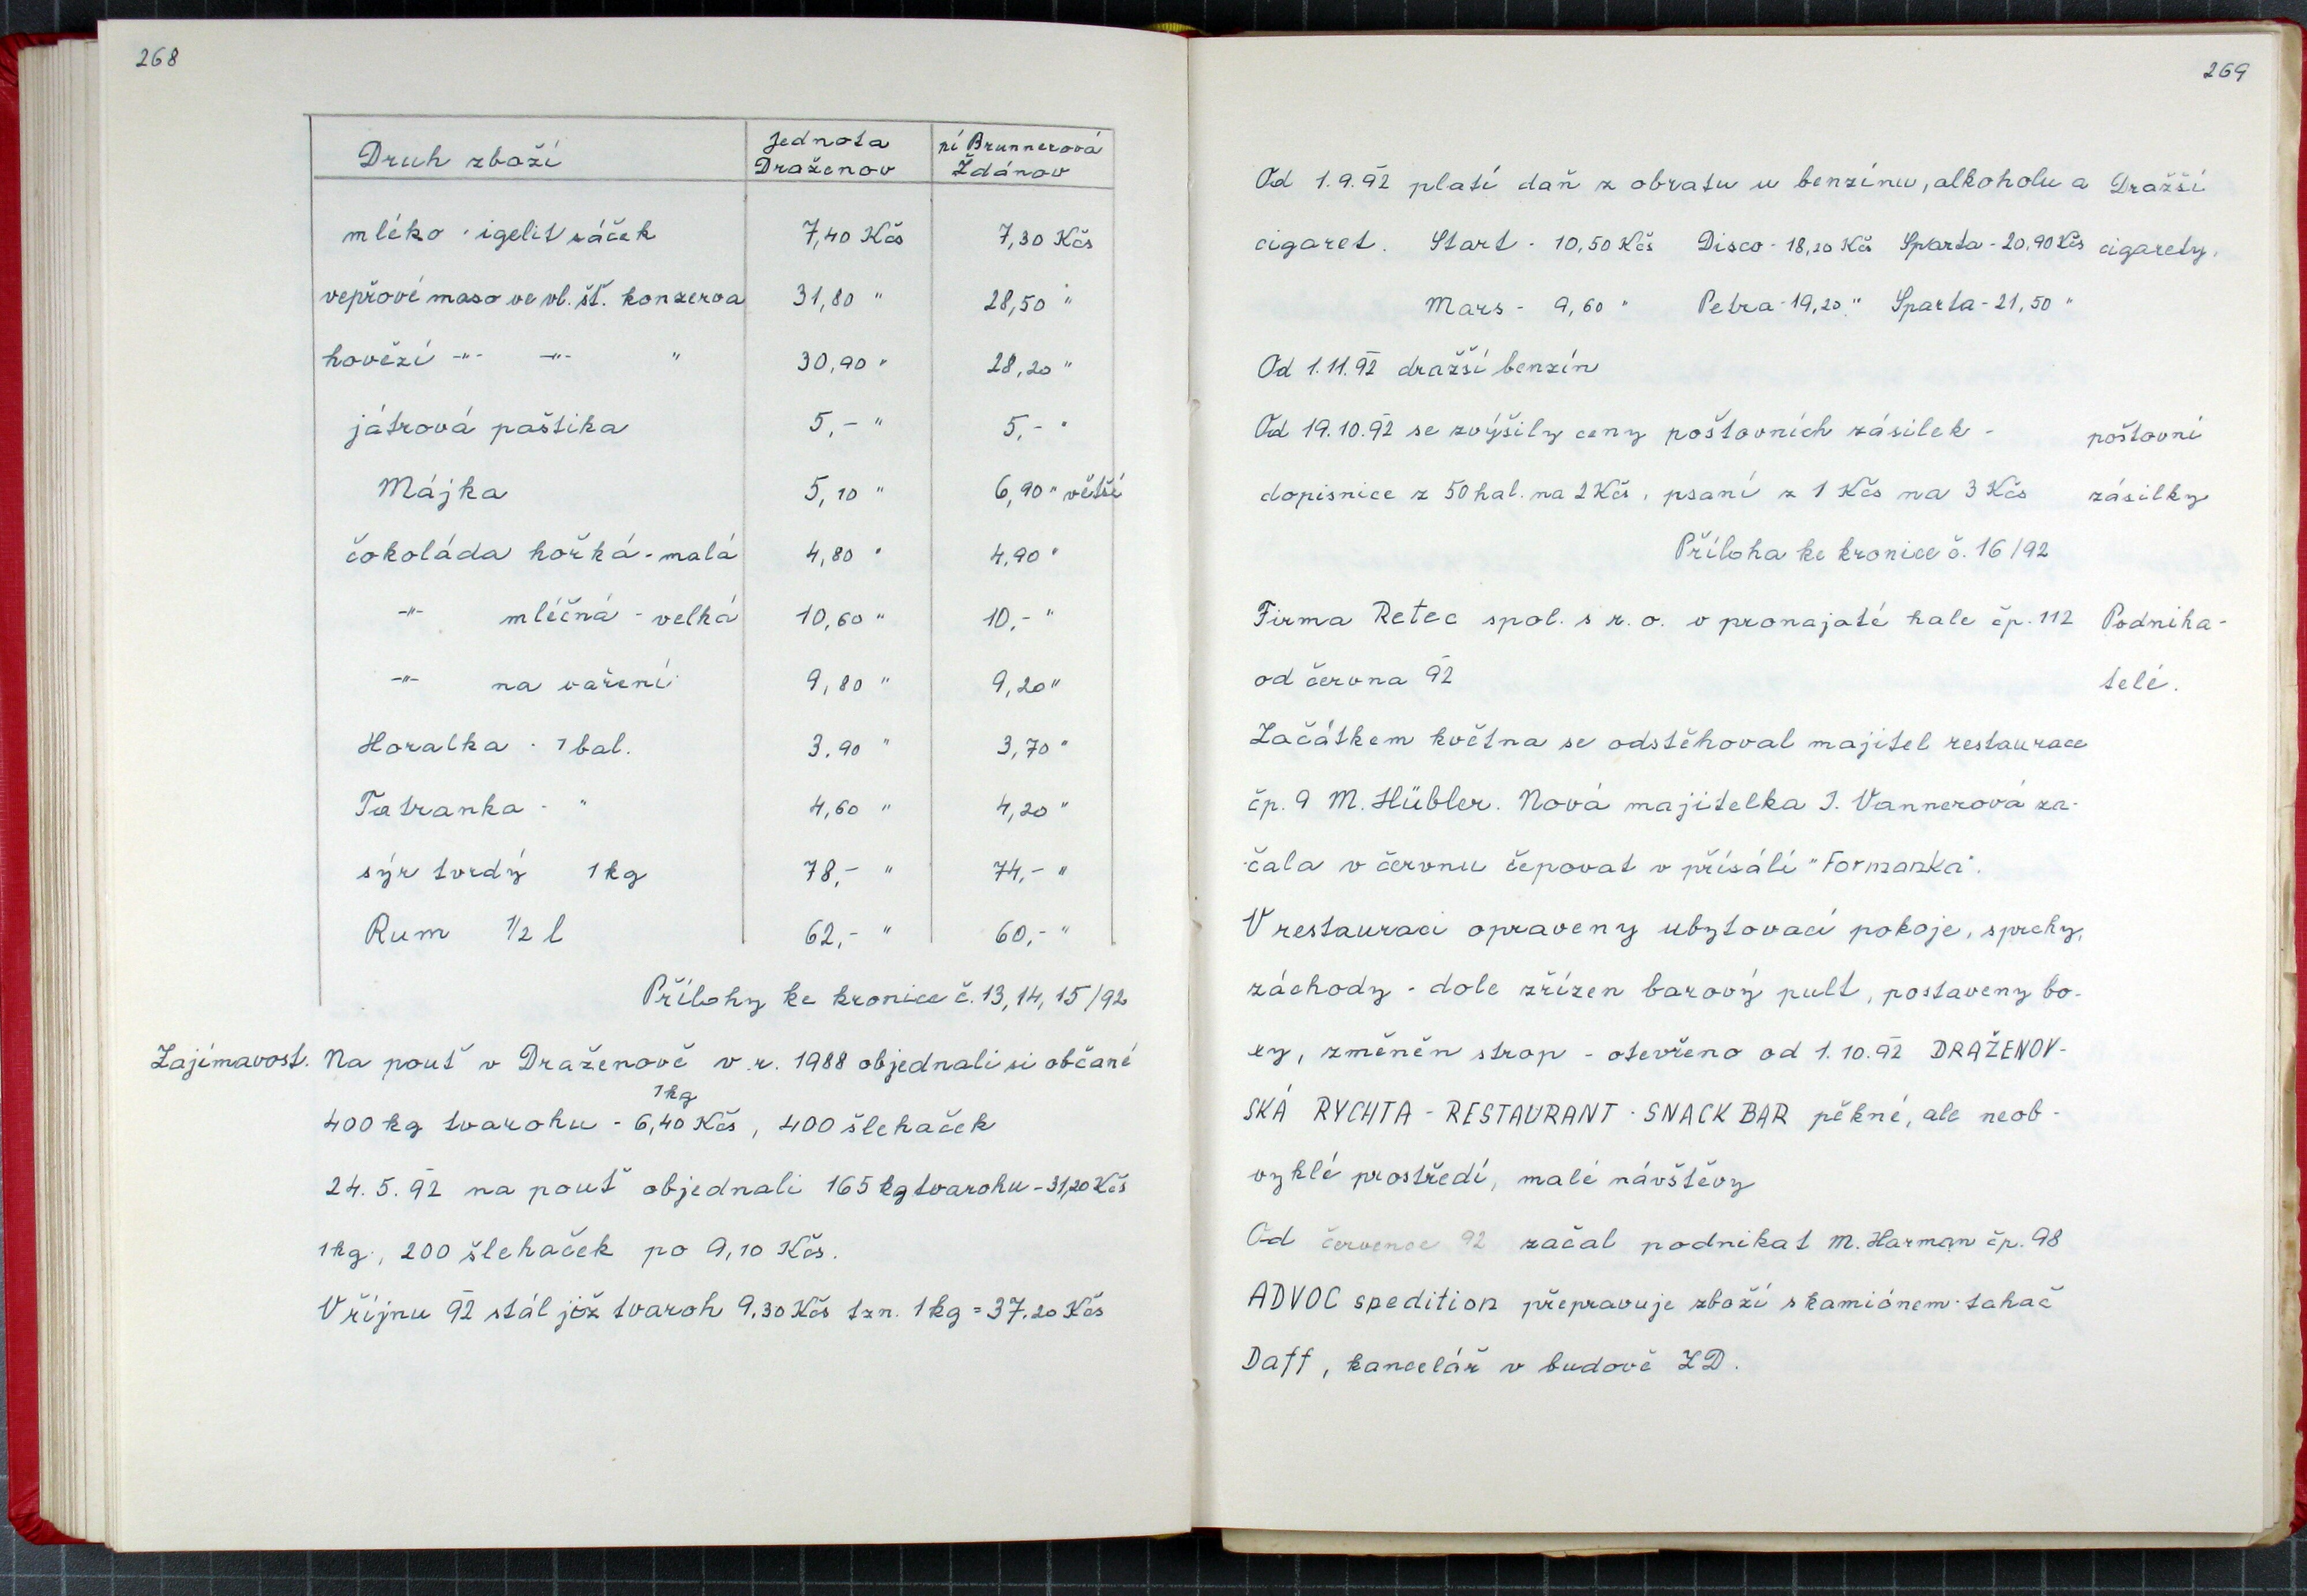 268
Druh zboží Jednota Draženov pí Brunnerová Ždánov
mléko - igelit sáček 7,40 Kčs 7,30 Kčs
vepřové maso ve vl. šť. konzerva 31,80 " 28,50 "
hovězí -"- -"- " 30,90 " 28,20 "
játrová paštika 5,- " 5,- "
Májka 5,10 " 6,90 " větší
čokoláda hořká - malá 4,80 " 4,90 "
-"- mléčná - velká 10,60 " 10,- "
-"- na vaření 9,80 " 9,20 "
Horalka - 1 bal. 3,90 " 3,70 "
Tatranka - " 4,60 " 4,20 "
sýr tvrdý 1 kg 78,- " 74,- "
Rum 1/2 l 62,- " 60,- "
Přílohy ke kronice č. 13, 14, 15/92
Zajímavost. Na pouť v Draženově v r. 1988 objednali si občané
1kg
400 kg tvarohu - 6,40 Kčs, 400 šlehaček
24. 5. 92 na pouť objednali 165 kg tvarohu - 31,20 Kčs
1kg, 200 šlehaček po 9,10 Kčs.
V říjnu 92 stál již tvaroh 9,30 Kčs tzn. 1 kg = 37,20 Kčs
269
Od 1.9.92 platí daň z obratu u benzínu, alkoholu a Dražší
cigaret. Start - 10,50 Kčs Disco - 18,20 Kčs Sparta - 20,90 Kčs cigarety.
Mars - 9,60 " Petra - 19,20 " Sparta - 21,50 "
Od 1.11.92 dražší benzín
Od 19.10.92 se zvýšily ceny poštovních zásilek - poštovní
dopisnice z 50 hal. na 2 Kčs, psaní z 1 Kčs na 3 Kčs zásilky
Příloha ke kronice č. 16/92
Firma Retec spol. s r. o. v pronajaté hale čp. 112 Podnika-
od června 92 telé.
Začátkem května se odstěhoval majitel restaurace
čp. 9 M. Hübler. Nová majitelka I. Vannerová za-
čala v červnu čepovat v přísálí "Formanka".
V restauraci opraveny ubytovací pokoje, sprchy,
záchody - dole zřízen barový pult, postaveny bo-
xy, změněn strop - otevřeno od 1.10.92 DRAŽENOV-
SKÁ RYCHTA - RESTAURANT - SNACK BAR pěkné, ale neob-
vyklé prostředí, malé návštěvy
Od července 92 začal podnikat M. Harman čp. 98
ADVOC spedition přepravuje zboží s kamiónem - tahač
Daff, kancelář v budově ZD.